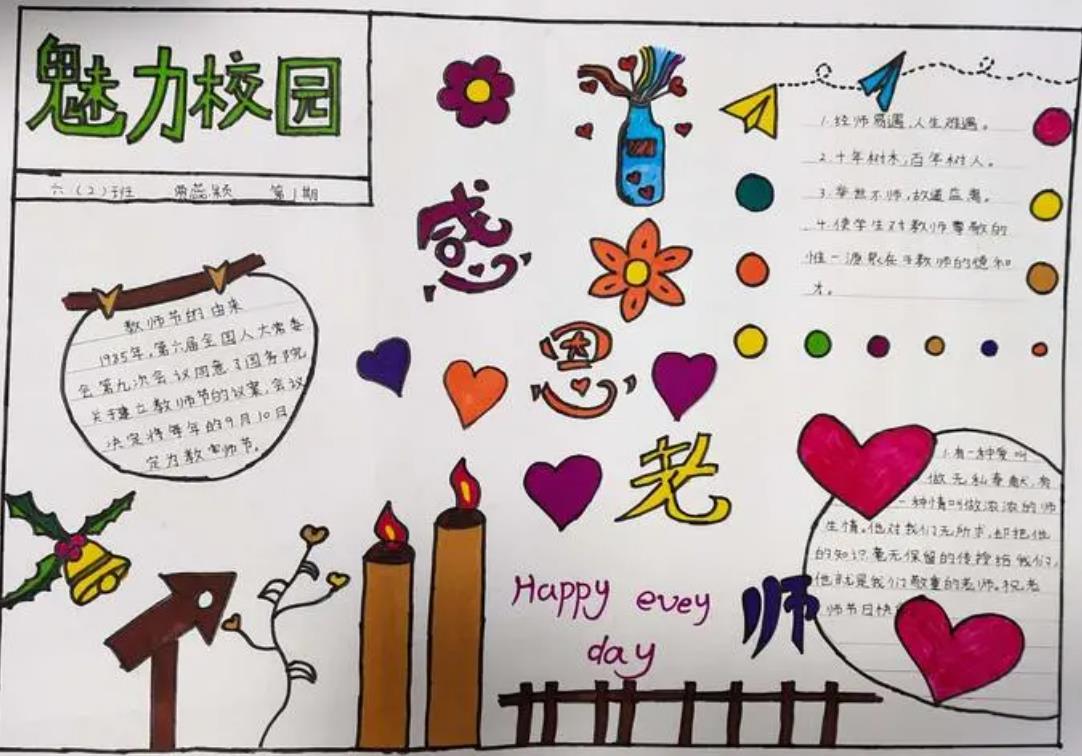 魅力校园
六(2)班 蕊颖 第1期
感
恩
老
师
教师节的由来
1985年,第六届全国人大常委
会第九次会议同意了国务院
关于建立教师节的议案,会议
决定将每年的9月10日
定为教师节。
1.经师易遇,人生难遇。
2.十年树木,百年树人。
3.举世不师,故道益离。
4.使学生对教师尊敬的
惟一源泉在于教师的德和
才。
1.有一种爱叫
做无私奉献,有
一种情叫做浓浓的师
生情。他对我们无所求,却把他
的知识毫无保留的传授给我们,
他就是我们敬重的老师。祝老
师节日快
Happy evey
day